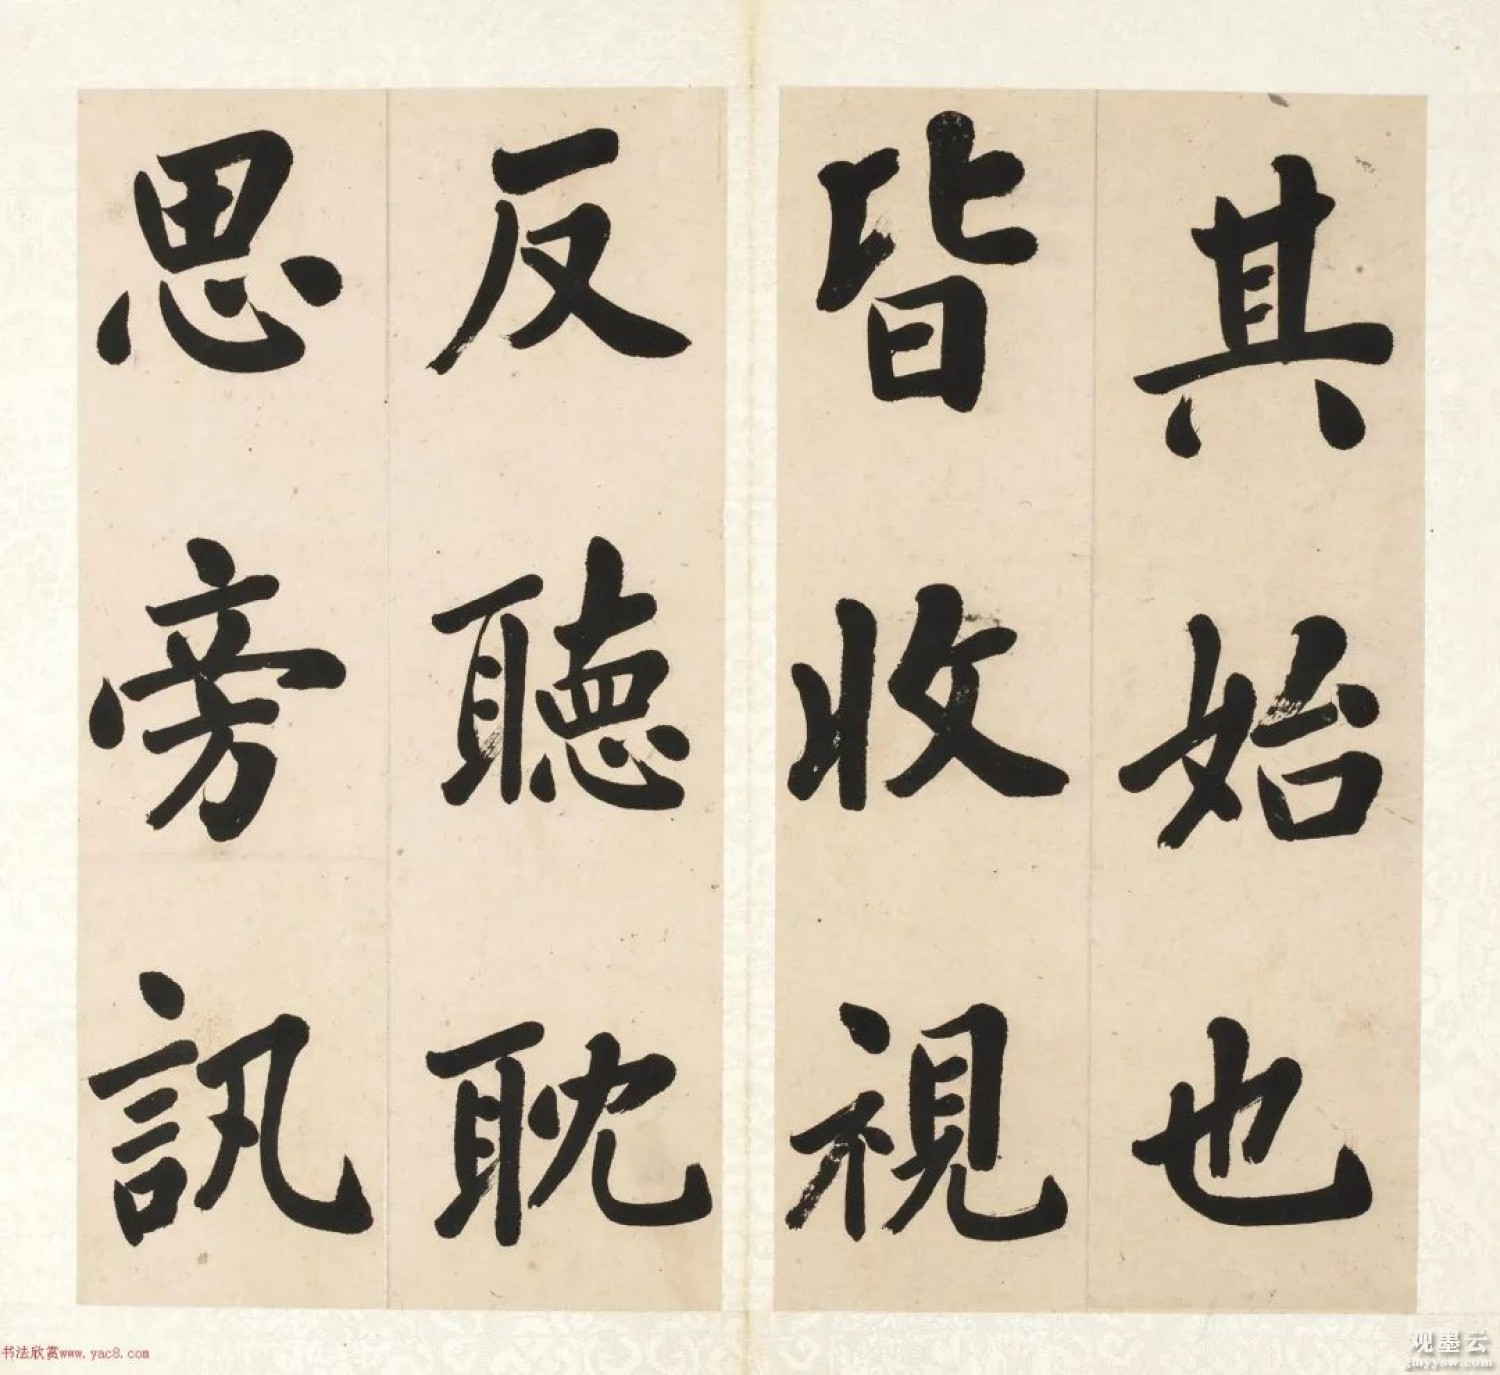 其始也
皆收視
反聽耽
思旁訊
书法欣赏www.yac8.com
观墨云
jmyysw.com